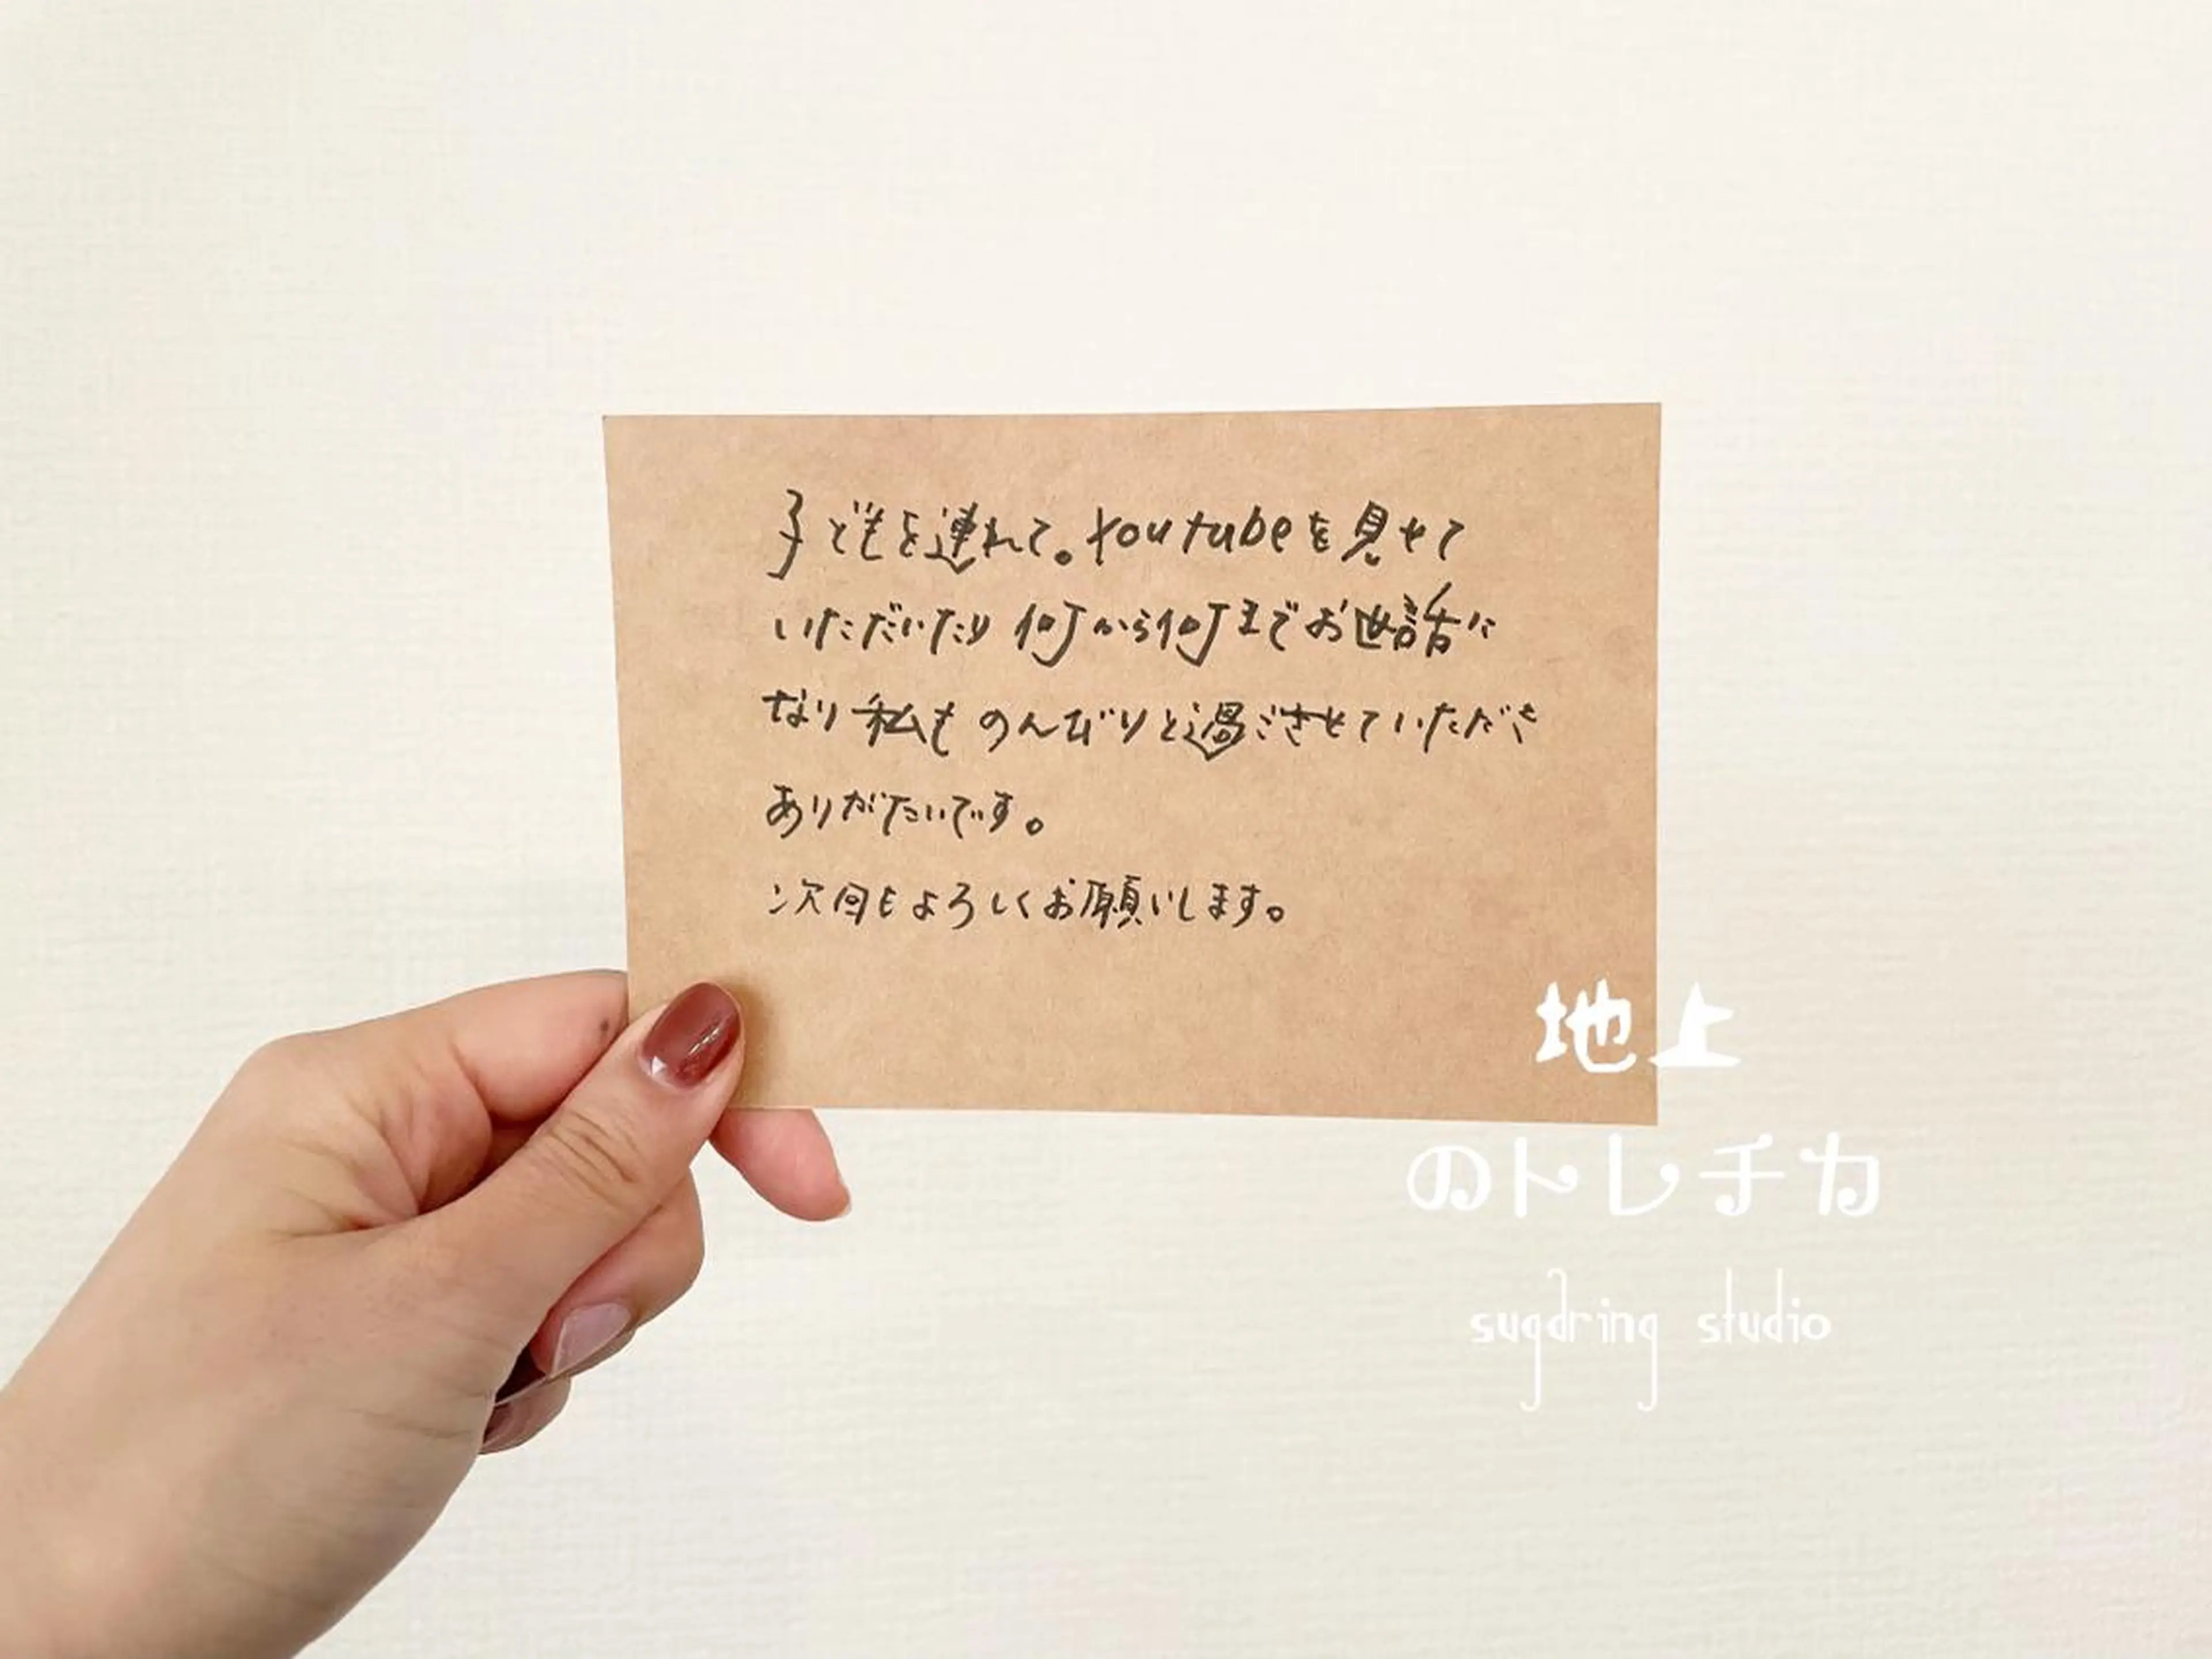 子どもを連れて。Youtubeを見せて
いただいたり何から何までお世話に
なり私ものんびりと過ごさせていただき
ありがたいです。
次回もよろしくお願いします。
地上
のトレチカ
sugdring studio